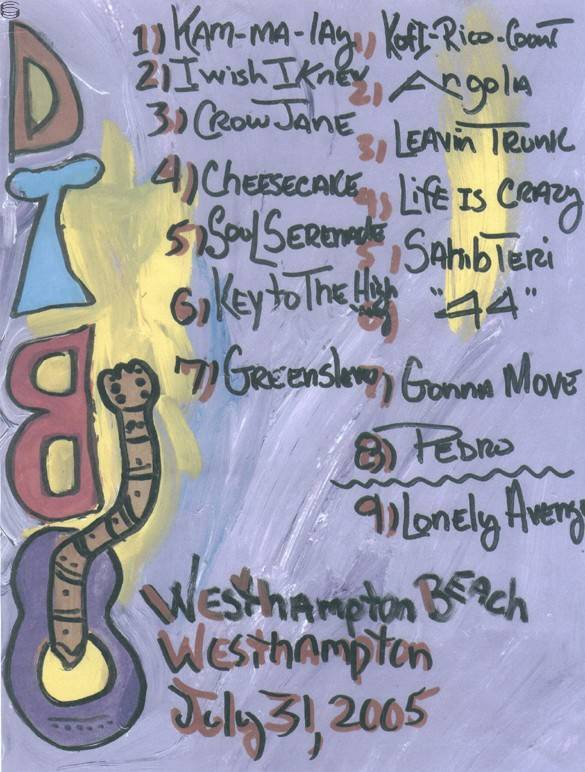 D
T
B
1) KAM-MA-LAY
2) I wish I Knew
3) CROW JANE
4) CHEESECAKE
5) SOUL SERENADE
6) KEY to THE High way
7)
1) KOFI-RICO-Count
2) Angola
3) LEAVIN TRUNK
4) LIFE IS CRAZY
5) SAHIB TERI
6) "44"
7) GONNA MOVE
8) PEDRO
9) LONELY
WESTHAMPTON BEACH
WESTHAMPTON
July 31, 2005